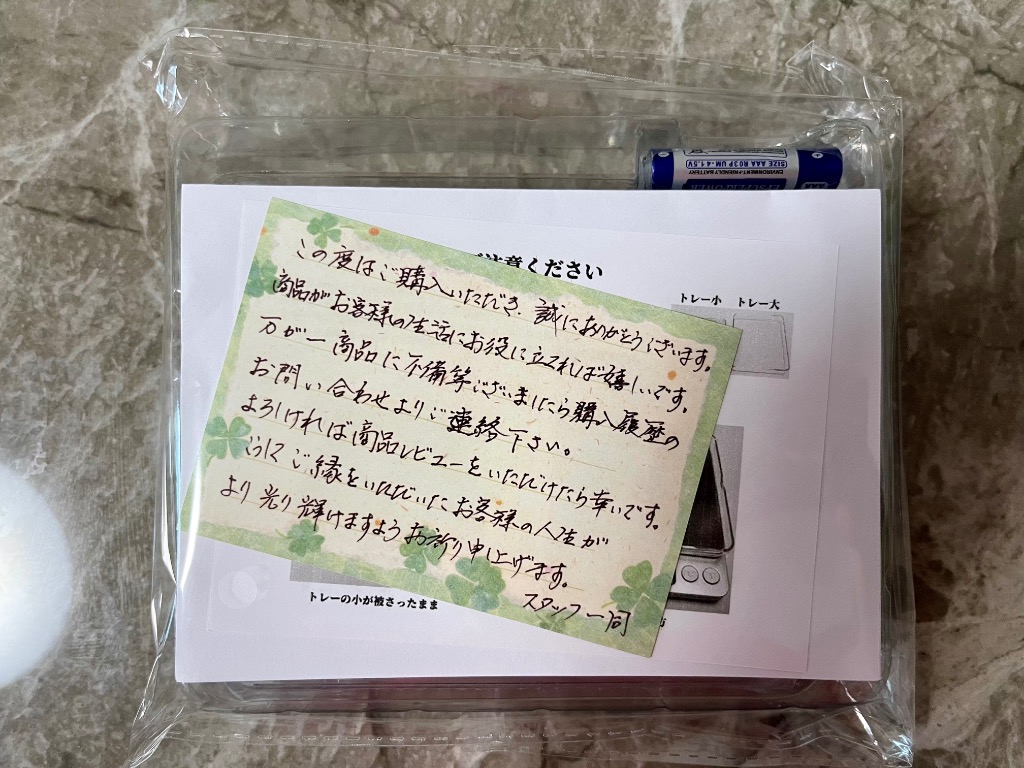 SIZE AAA R03P UM-4 1.5V
ENVIRONMENT-FRIENDLY BATTERY
注意ください
トレー小 トレー大
この度はご購入いただき、誠にありがとうございます。
商品がお客様の生活にお役に立てれば嬉しいです。
万が一商品に不備等ございましたら購入履歴の
お問い合わせよりご連絡下さい。
よろしければ商品レビューをいただけたら幸いです。
ご縁をいただいたお客様の人生が
より光り輝けますようお祈り申し上げます。
スタッフ一同
トレーの小が被さったまま